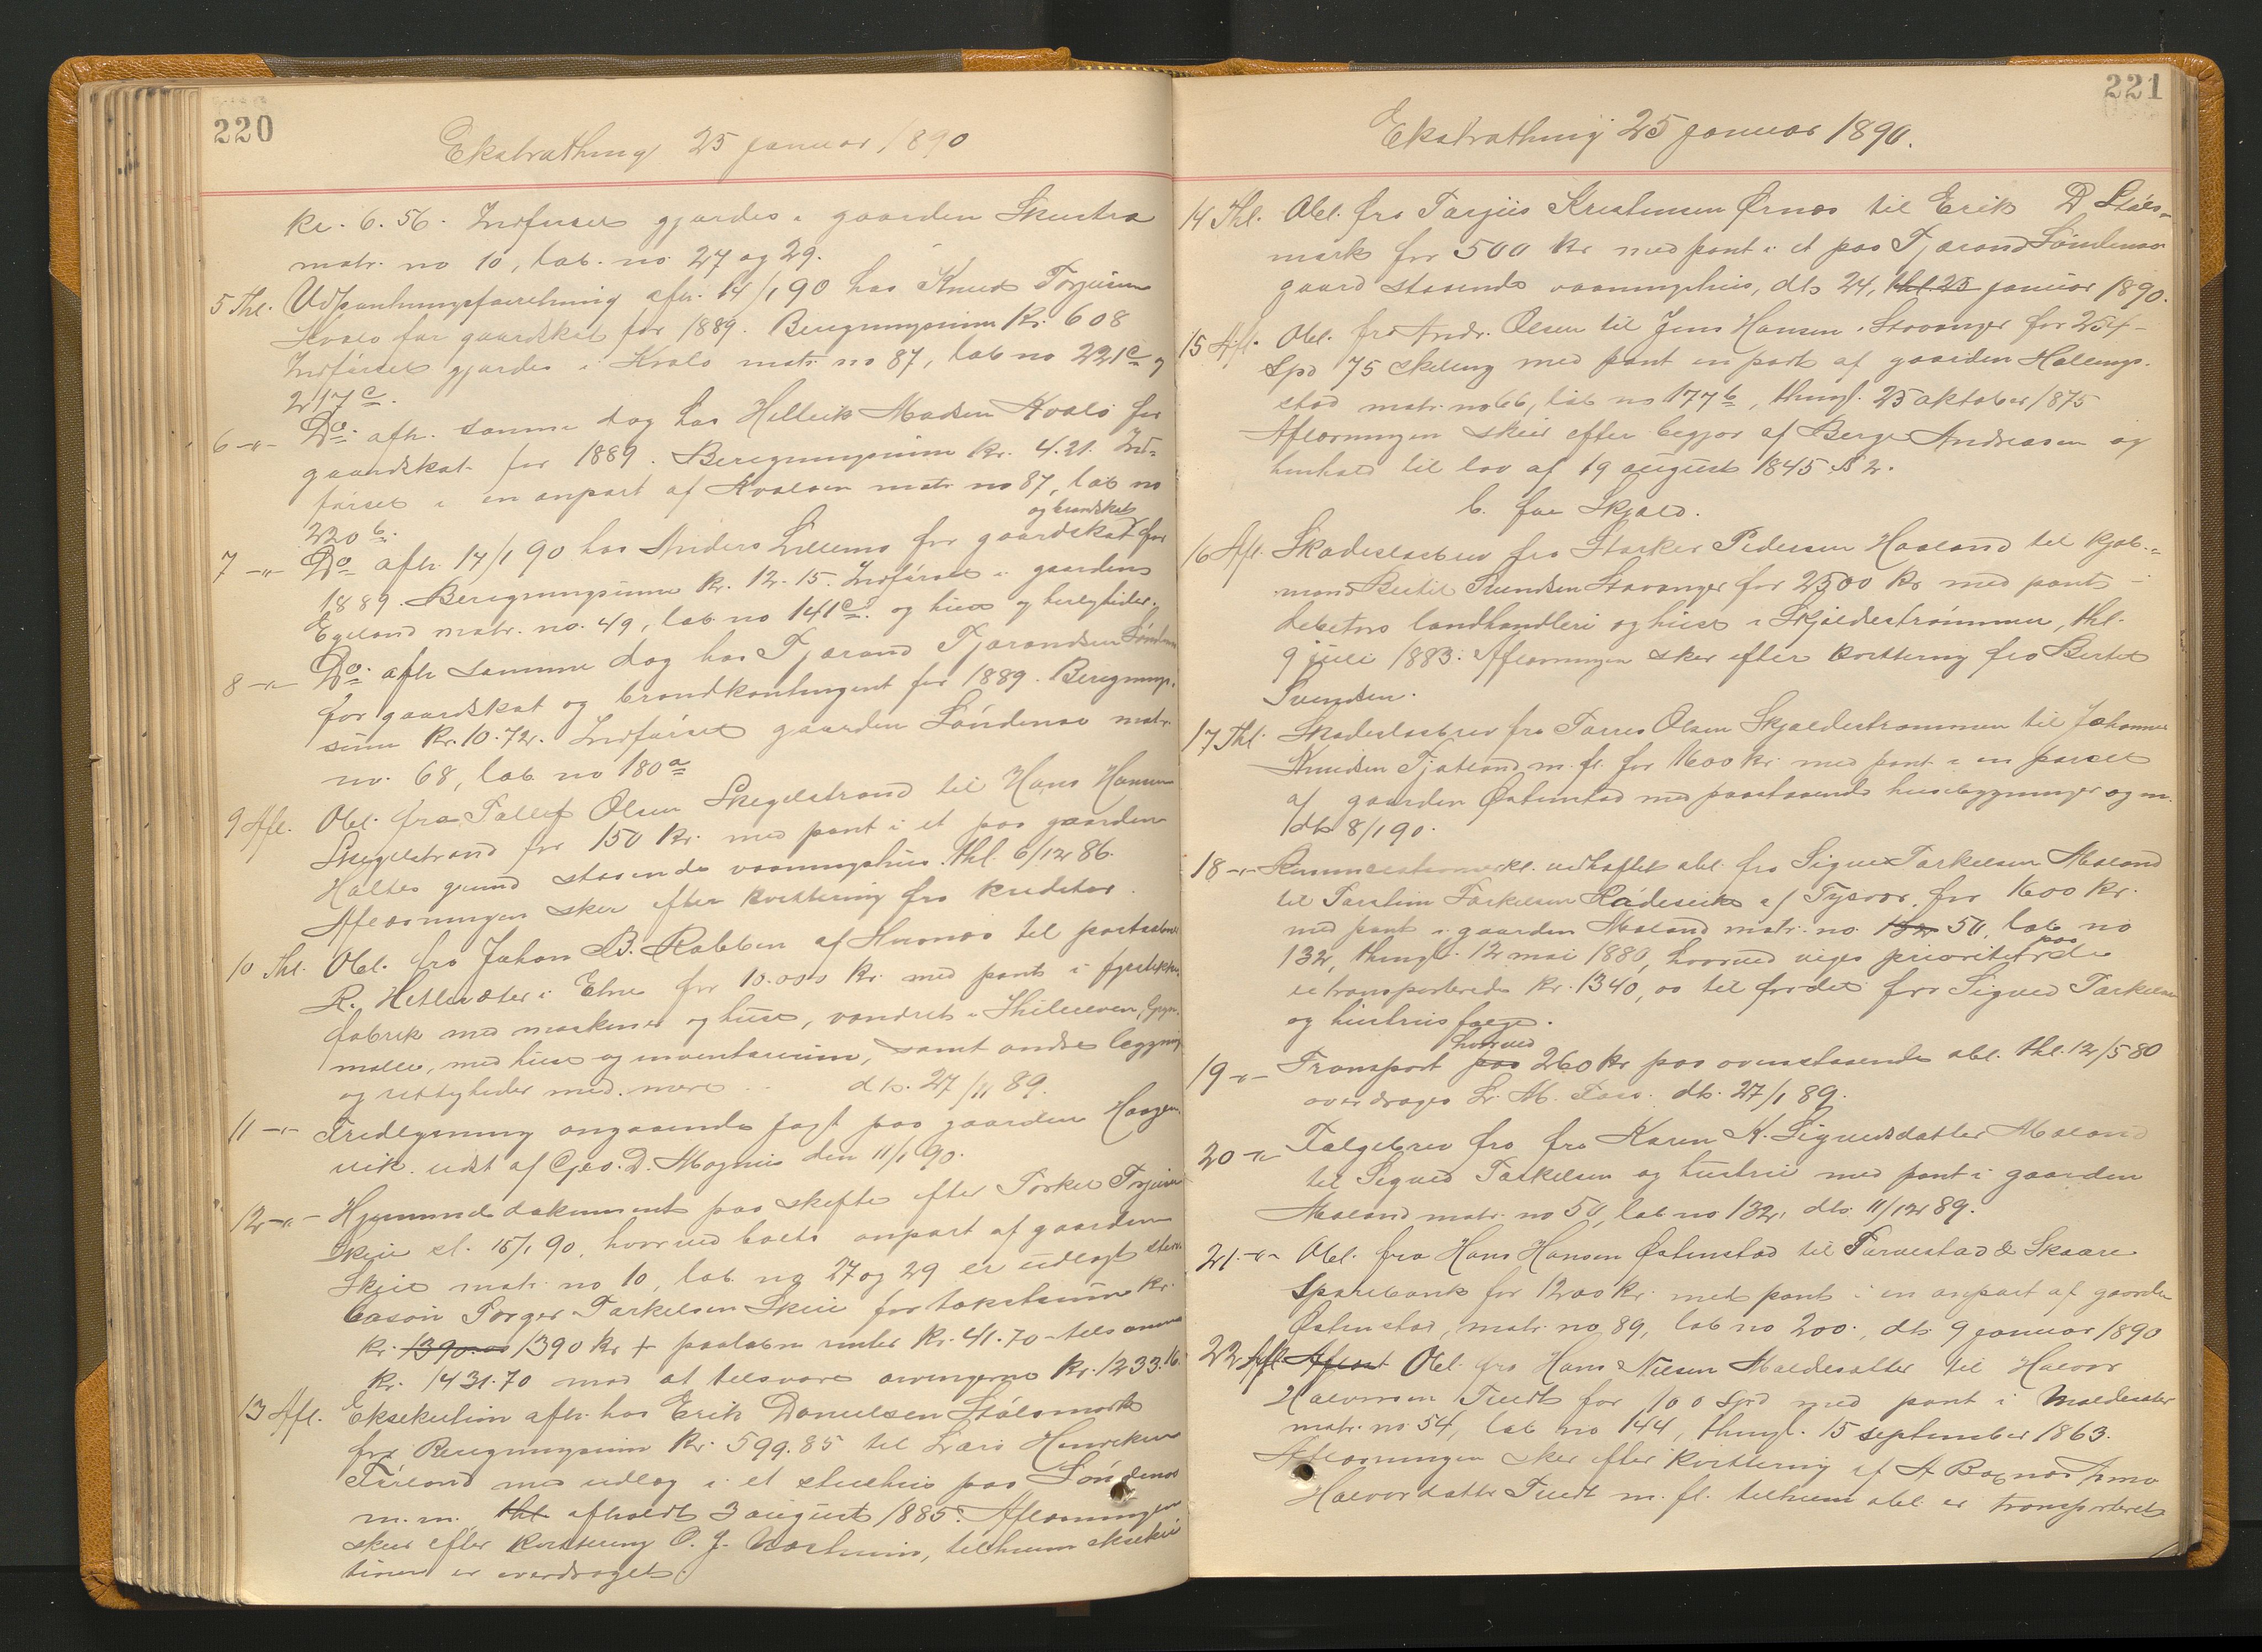 220
Ekstrathing 25 januar 1890
kr. 6.56. Indførsel gjordes i gaarden
matr. no 10, lab. no 27 og 29.
5 Thl. Udpantningsforretning afh. 14/1 90 hos Knud Torjusen
Kvalø for gaardskat for 1889. Beregningssum Kr. 608
Indførsel gjordes i Kvalø matr no 87, lab no 221c og
217c.
6 -"- Do. afh. samme dag hos Helleik Madsen Kvalø for
gaardskat for 1889. Beregningssum kr. 4.21. Ind-
førsel i en anpart af Kvaløen matr no 87, lab no
220b.
7 -"- Do afh. 14/1 90 hos Anders for gaardskat og brandskat for
1889. Beregningssum kr. 12.15. Indførsel i gaarden
Egeland matr. no. 49, lab no 141c og huse og herligheder.
8 -"- Do. afh samme dag hos Tjærand Tjærandsen
for gaardskat og brandkontingent for 1889. Beregnings-
sum Kr. 10.72. Indførsel gaarden Søndenaa matr.
no. 68, lab no 180a
9 Afl. Obl. fra Tallef Olsen Skegelstrand til Hans Hansen
Skegelstrand for 150 kr. med pant i et paa gaarden
grund staaende vaaningshus. thl. 6/12 86.
Aflæsningen sker efter kvittering fra kreditor.
10 Thl. Obl. fra Johan B. Rabben af til
R. i Etne for 10.000 kr. med pant i
fabrik med maskiner og huse, vandret i
mølle, med huse og inventarium, samt andre
og rettigheder med mere dt. 27/11 89.
11 -"- Fredlysning angaaende jagt paa gaarden
vik udst af Geo. D. den 11/1 90.
12 -"- Hjemmelsdokument paa skifte efter Torkel Torjusen
Skeie sl. 15/1 90, hvorved boets anpart af gaarden
Skeie matr. no 10, lab. no 27 og 29 er udlagt
Torger Torkelsen Skeie for takstsum kr.
kr. 1390.00 1390 kr + paaløbne renter kr. 41.70 tilsammen
kr. 1431.70 mod at tilsvare arvingerne kr. 1233.16.
13 Afl. Eksekution afh. hos Erik Danielsen Stølsmark
for Beregningssum kr. 599.85 til Lars Henriksen
med udlæg i et stuehus paa Søndenaa
m.m. thl afholdt 3 august 1885. Aflæsningen
sker efter kvittering O. J. tilhvem ekseku
tionen er overdraget.
221
Ekstrathing 25 januar 1890.
14 Thl. Obl. fra Tarjeis Kristensen Ørnæs til Erik D Støls-
mark for 500 kr med pant i et paa Tjærand Søndenaa
gaard staaende vaaningshus, dt. 24, thl. 25 januar 1890.
15 Afl. Obl. fra Andr. Olsen til Jens Hansen, Stavanger for 254
Spd 75 skilling med pant en part af gaarden Hallings-
stad matr. no 66, lab no 177b, thingl. 25 oktober 1875
Aflæsningen sker efter begjær af Berge Andreasen og
henhold til lov af 19 august 1845 § 2.
b. for Skjold.
16 Afl. Skadesløsbrev fra Størker Pedersen Haaland til kjøb-
mand Bertil Svendsen Stavanger for 2500 kr med pant i
debitors landhandleri og huse i Skjoldestrømmen, thl.
9 juli 1883. Aflæsningen sker efter kvittering fra Bertel
Svendsen.
17 Thl. Skadesløsbrev fra Torres Olsen Skjoldestrømmen til Johannes
Knudsen Fjotland m. fl. for 1600 kr. med pant i en parcel
af gaarden Østenstad med paastaaende husebygninger og m.
dt. 8/1 90.
18 -"- vedhæftet obl. fra Sigved Torkelsen Maland
til Torstein Torkelsen af Tysvær for 1600 kr.
med pant i gaarden Maland matr. no. 132 50, lab no
132, thingl. 12 mai 1880, hvorved viges prioritet for de
paa
transporterede kr. 1340,00 til fordel for Sigved Torkelsen
og hustrus følge.
19 -"- Transport paa hvorved 260 kr paa ovenstaaende obl. thl. 12/5 80
overdrages L. M. dt. 27/1 89.
20 -"- Følgebrev fra fra Karen K. Sigvedsdatter Maland
til Sigved Torkelsen og hustru med pant i gaarden
Maland matr. no 50, lab no 132, dt. 11/12 89.
21. -"- Obl. fra Hans Hansen Østenstad til Torvestad & Skaare
Sparebank for 1200 kr. med pant i en anpart af gaarden
Østenstad, matr. no 89, lab no 200., dt. 9 januar 1890
22 Afl. Aflæst Obl. fra Hans Nilsen Moldesæter til Halvor
Halvorsen Tvedt for 100 spd med pant i Moldesæter
matr. no. 54, lab no 144, thingl. 15 september 1863.
Aflæsningen sker efter kvittering af
Halvordatter Tvedt m. fl. tilhvem obl. er transporteret